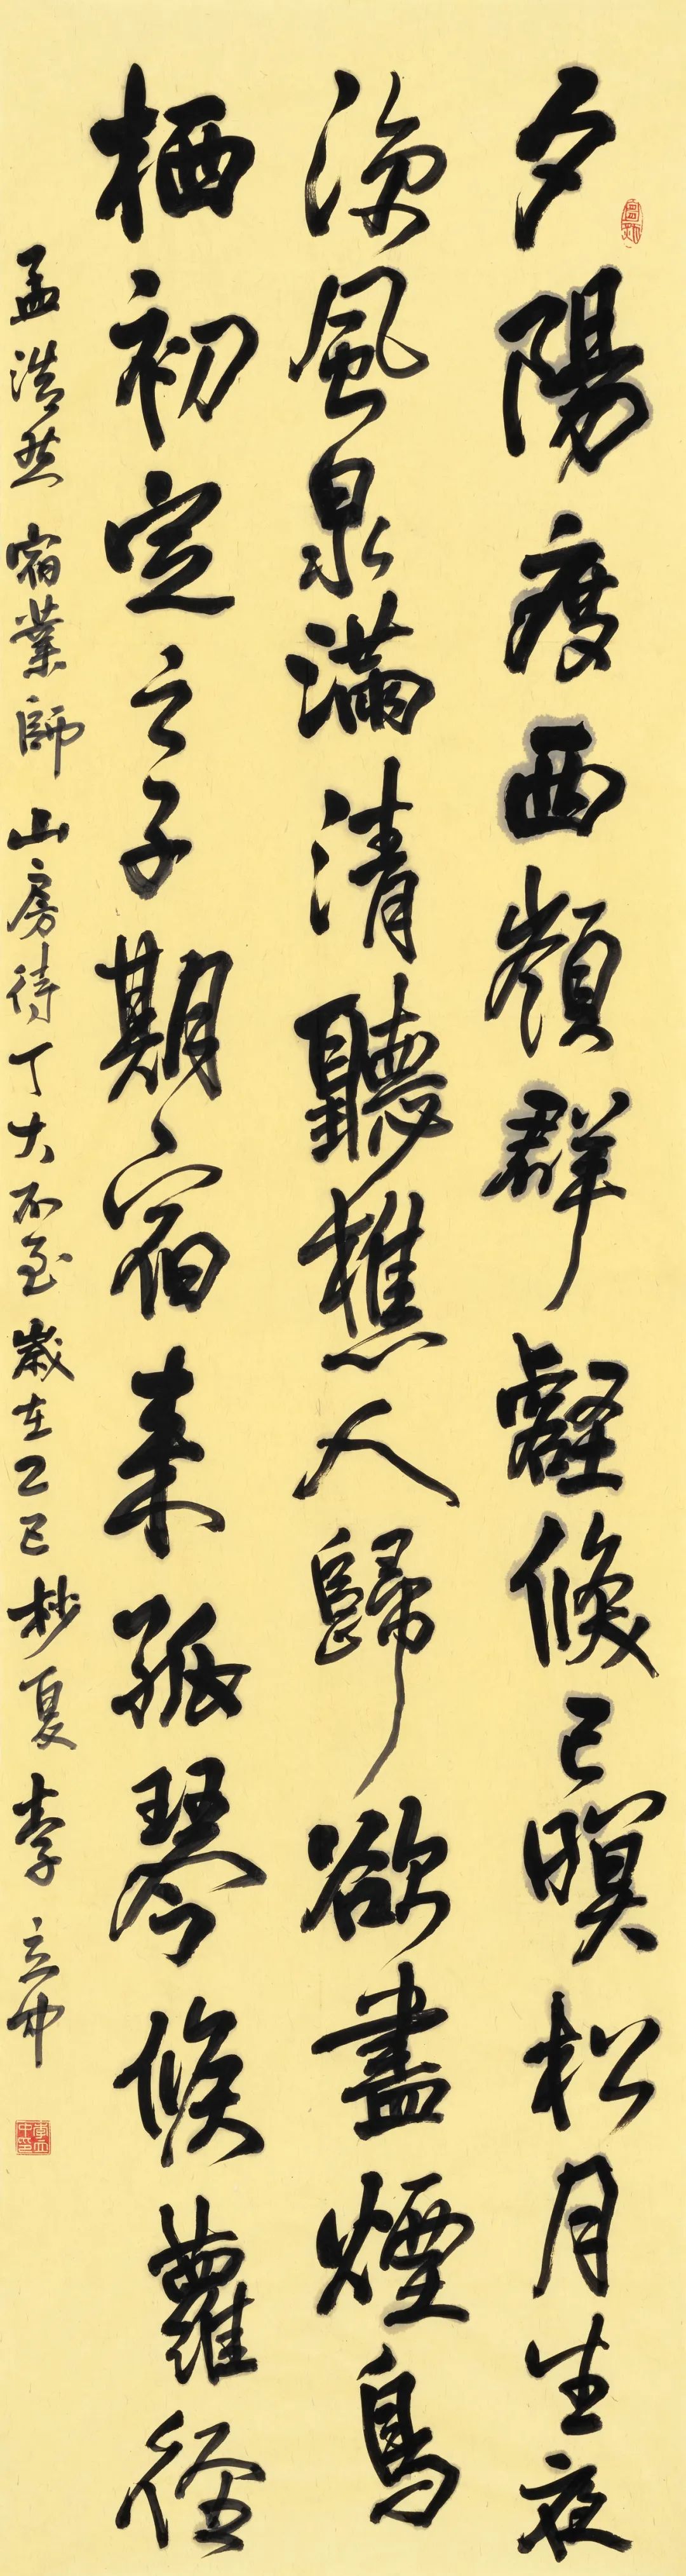 夕陽度西嶺群壑倏已暝松月生夜
涼風泉滿清聽樵人歸欲盡煙鳥
栖初定之子期宿來孤琴候蘿徑
孟浩然宿業師山房待丁大不至歲在乙巳杪夏李立中